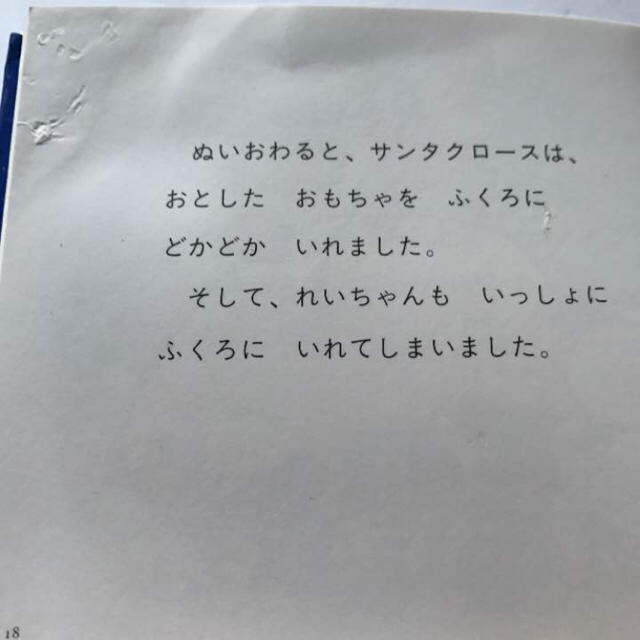 ぬいおわると、サンタクロースは、
おとした　おもちゃを　ふくろに
どかどか　いれました。
そして、れいちゃんも　いっしょに
ふくろに　いれてしまいました。
18